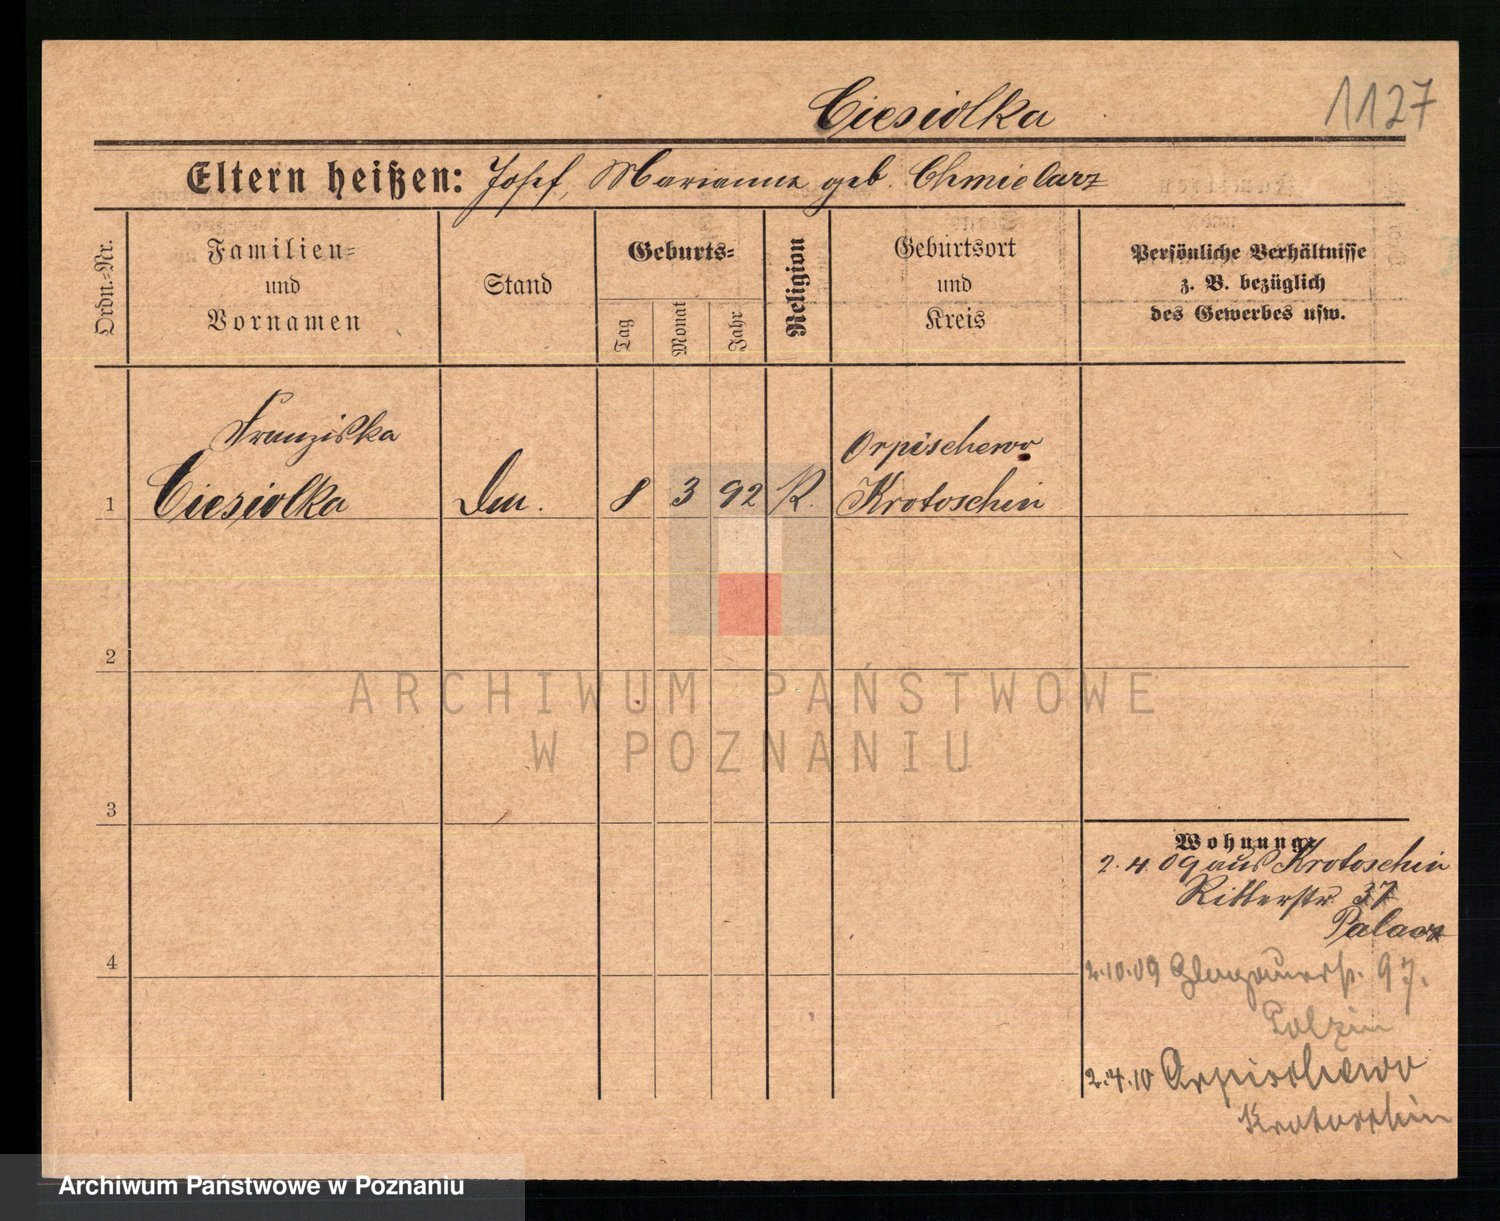 Ciesiolka
1127
Eltern heißen: Josef, Marianna geb. Chmielarz
Ordn.-Nr.
Familien-
und
Vornamen
Stand
Geburts-
Tag
Monat
Jahr
Religion
Geburtsort
und
Kreis
Persönliche Verhältnisse
z. B. bezüglich
des Gewerbes usw.
Franziska
Orpischewo
1 Ciesiolka 8 3 92 K. Krotoschin
2
ARCHIWUM PAŃSTWOWE
W POZNANIU
3
Wohnung:
2.4.09 aus Krotoschin
Ritterstr. 37
Palacz
4
2.10.09 Glogauerstr. 97.
Polzin
2.4.10 Orpischewo
Krotoschin
Archiwum Państwowe w Poznaniu